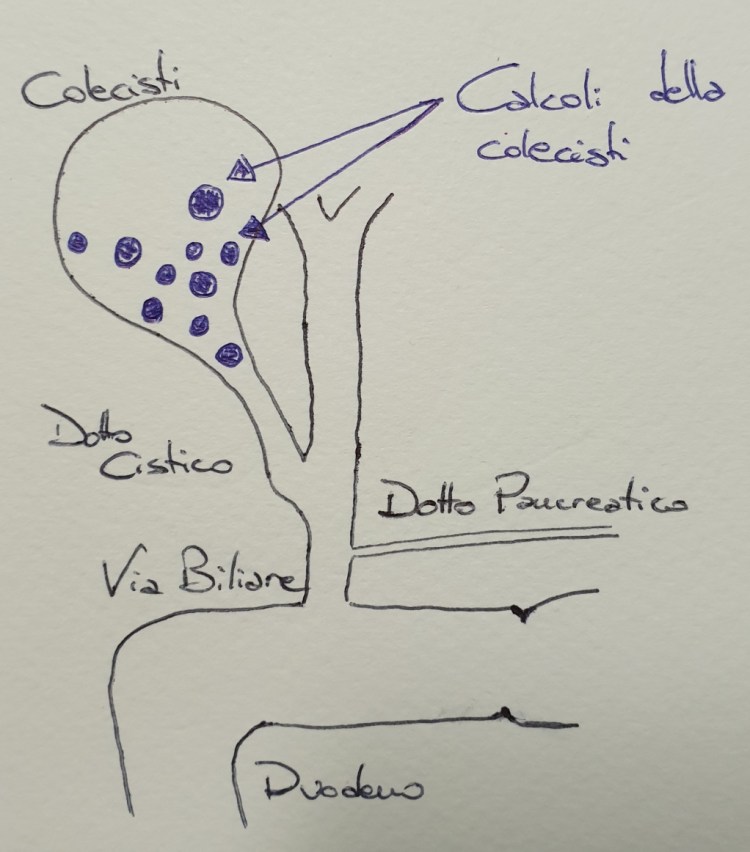 Colecisti
Calcoli della
colecisti
Dotto
Cistico
Dotto Pancreatico
Via Biliare
Duodeno